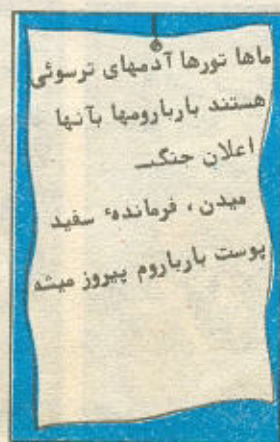 ماها تورها آدمهای ترسوئی
هستند بارباروم‌ها بآنها
اعلان جنگ
میدن ، فرماندهٔ سفید
پوست بارباروم پیروز میشه